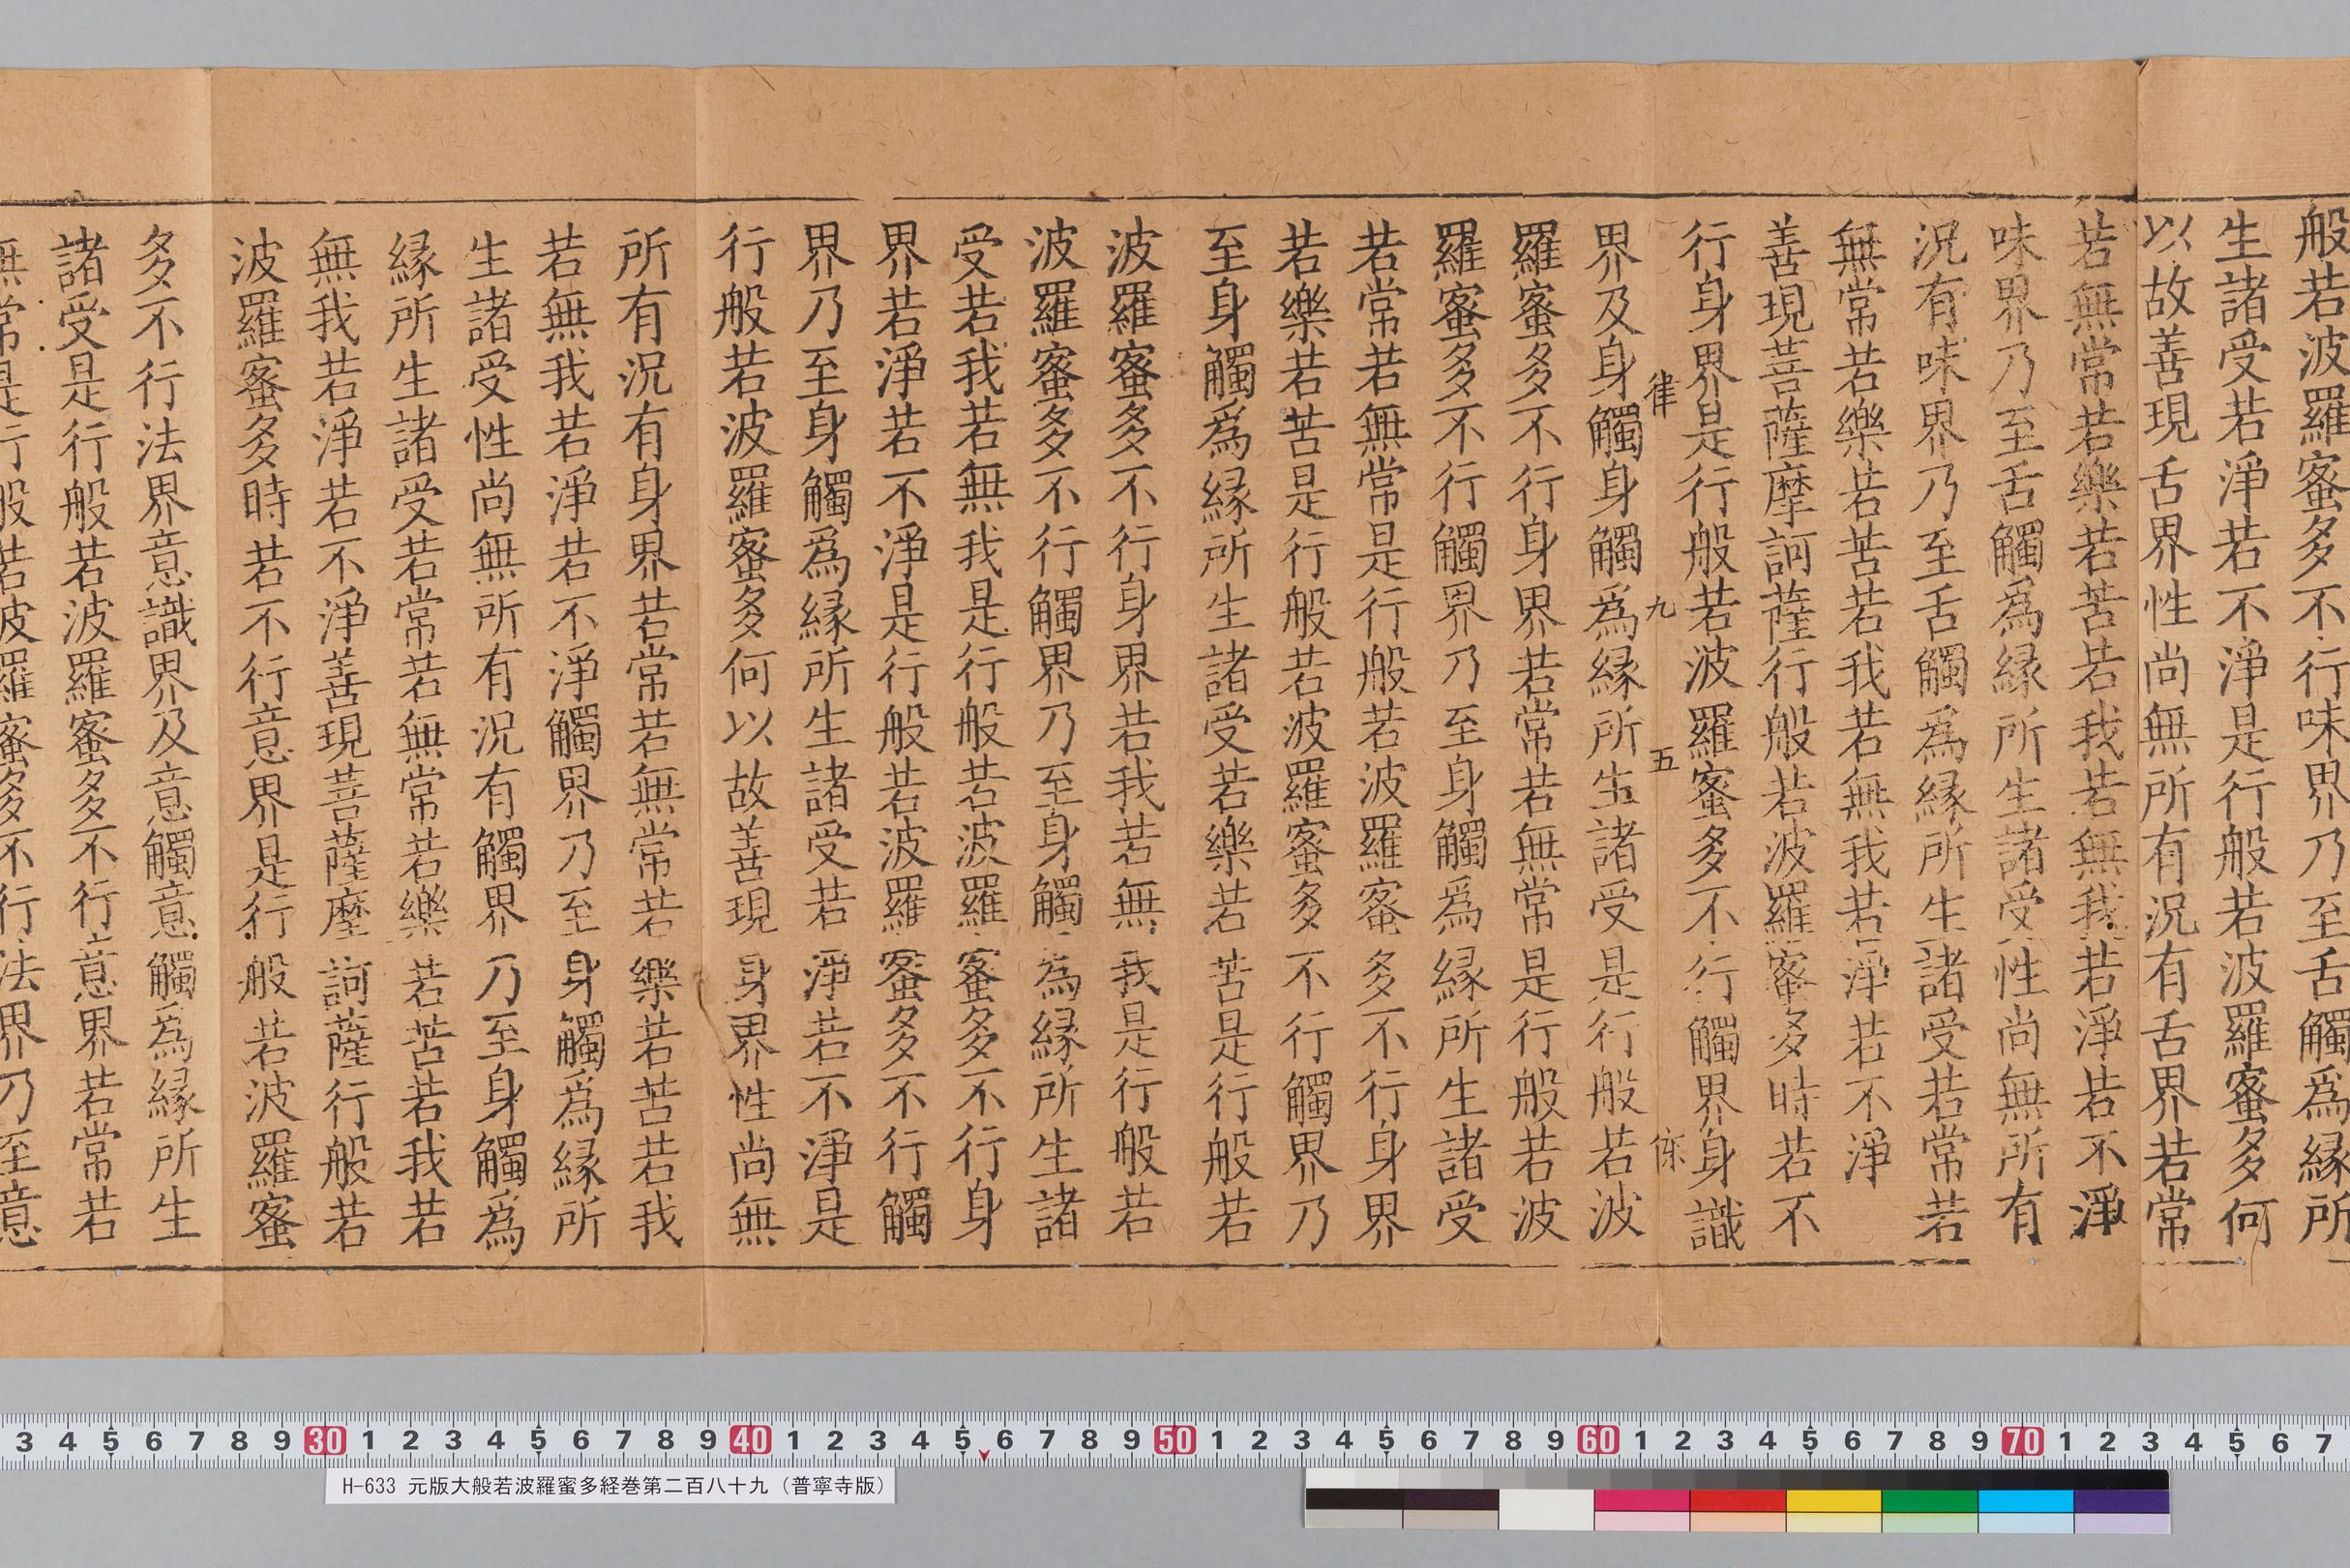 般若波羅蜜多不行味界乃至舌觸爲緣所
生諸受若淨若不淨是行般若波羅蜜多何
以故善現舌界性尚無所有況有舌界若常
若無常若樂若苦若我若無我若淨若不淨
味界乃至舌觸爲緣所生諸受性尚無所有
況有味界乃至舌觸爲緣所生諸受若常若
無常若樂若苦若我若無我若淨若不淨
善現菩薩摩訶薩行般若波羅蜜多時若不
行身界是行般若波羅蜜多不行觸界身識
律 九 五
界及身觸身觸爲緣所生諸受是行般若波
羅蜜多不行身界若常若無常是行般若波
羅蜜多不行觸界乃至身觸爲緣所生諸受
若常若無常是行般若波羅蜜多不行身界
若樂若苦是行般若波羅蜜多不行觸界乃
至身觸爲緣所生諸受若樂若苦是行般若
波羅蜜多不行身界若我若無我是行般若
波羅蜜多不行觸界乃至身觸爲緣所生諸
受若我若無我是行般若波羅蜜多不行身
界若淨若不淨是行般若波羅蜜多不行觸
界乃至身觸爲緣所生諸受若淨若不淨是
行般若波羅蜜多何以故善現身界性尚無
所有況有身界若常若無常若樂若苦若我
若無我若淨若不淨觸界乃至身觸爲緣所
生諸受性尚無所有況有觸界乃至身觸爲
緣所生諸受若常若無常若樂若苦若我若
無我若淨若不淨善現菩薩摩訶薩行般若
波羅蜜多時若不行意界是行般若波羅蜜
多不行法界意識界及意觸意觸爲緣所生
諸受是行般若波羅蜜多不行意界若常若
無常是行般若波羅蜜多不行法界乃至意
3 4 5 6 7 8 9 30 1 2 3 4 5 6 7 8 9 40 1 2 3 4 5 6 7 8 9 50 1 2 3 4 5 6 7 8 9 60 1 2 3 4 5 6 7 8 9 70 1 2 3 4 5 6 7
H-633 元版大般若波羅蜜多経巻第二百八十九（普寧寺版）